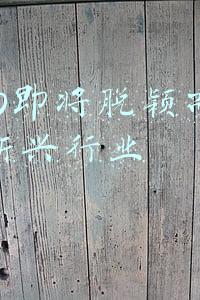 即将脱颖
兴行业